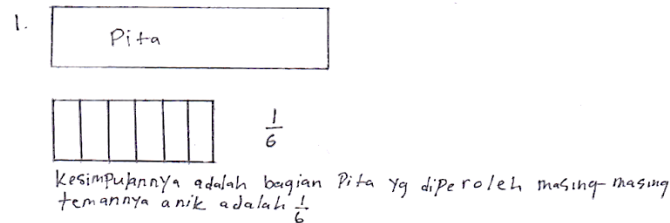 1.
Pita
1/6
Kesimpulannya adalah bagian Pita yg diperoleh masing-masing
temannya anik adalah 1/6